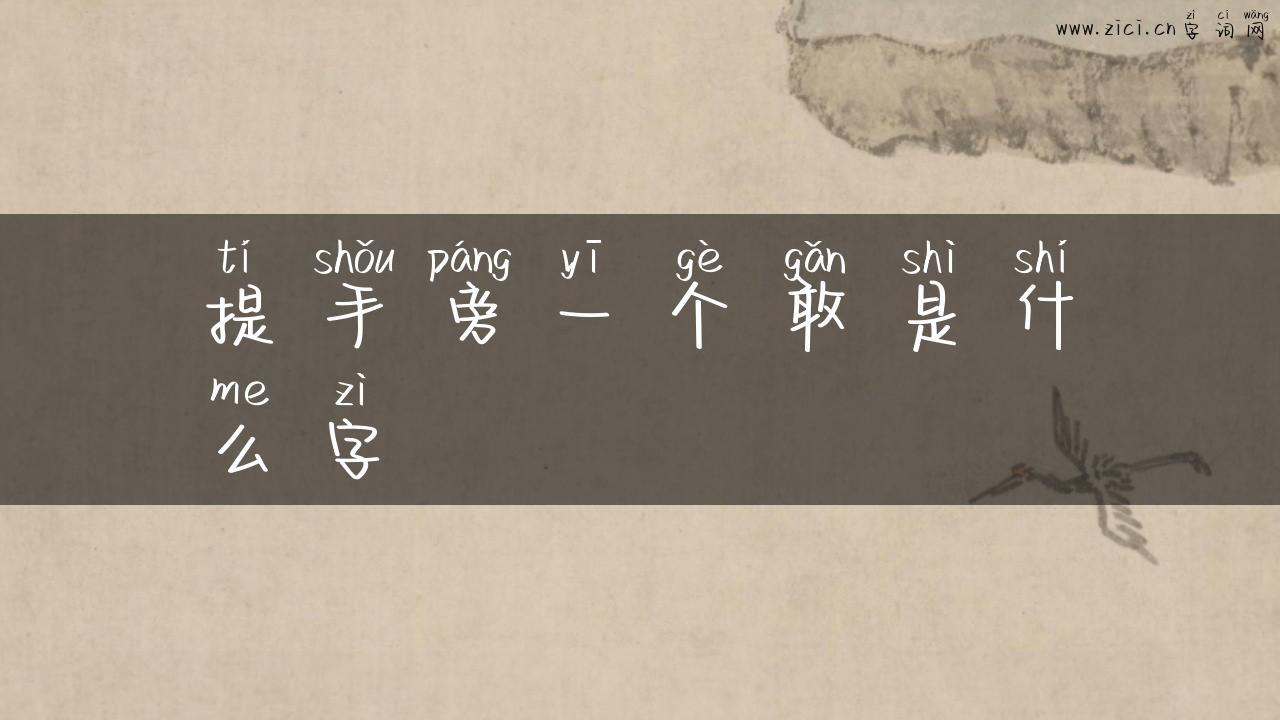 zì cí wǎng
www.zici.cn 字词网
tí shǒu páng yī gè gǎn shì shí
提手旁一个敢是什
me zì
么字